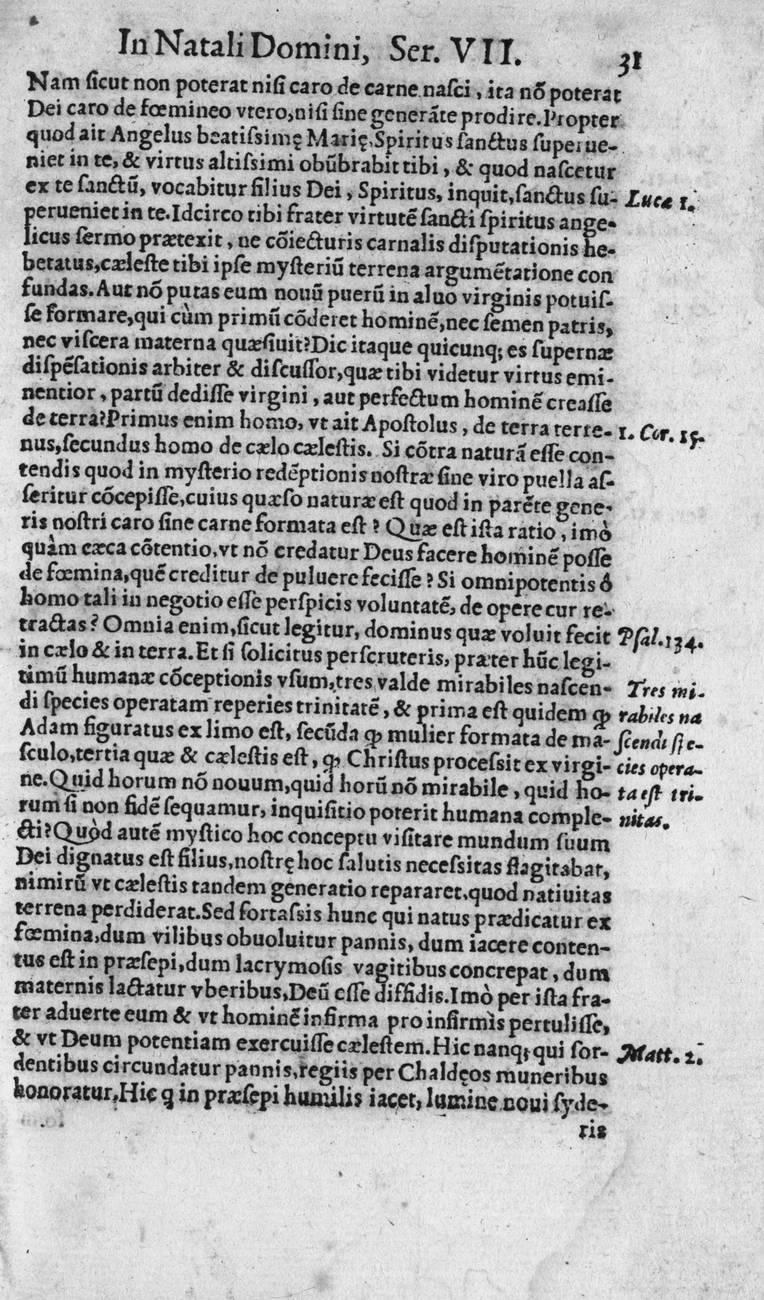 In Natali Domini, Ser. VII. 31
Nam ſicut non poterat niſi caro de carne naſci, ita nõ poterat
Dei caro de fœmineo vtero, niſi ſine generãte prodire. Propter
quod ait Angelus beatiſsimę Marię, Spiritus ſanctus ſuperue-
niet in te, & virtus altiſsimi obũbrabit tibi, & quod naſcetur
ex te ſanctũ, vocabitur filius Dei, Spiritus, inquit, ſanctus ſu- Lucæ 1.
perueniet in te. Idcirco tibi frater virtutẽ ſancti ſpiritus ange-
licus ſermo prætexit, ne cõiecturis carnalis diſputationis he-
betatus, cæleſte tibi ipſe myſteriũ terrena argumẽtatione con
fundas. Aut nõ putas eum nouũ puerũ in aluo virginis potuiſ-
ſe formare, qui cùm primũ cõderet hominẽ, nec ſemen patris,
nec viſcera materna quæſiuit? Dic itaque quicunq; es ſupernæ
diſpẽſationis arbiter & diſcuſſor, quæ tibi videtur virtus emi-
nentior, partũ dediſſe virgini, aut perfectum hominẽ creaſſe
de terra? Primus enim homo, vt ait Apoſtolus, de terra terre- 1. Cor. 15.
nus, ſecundus homo de cælo cæleſtis. Si cõtra naturã eſſe con-
tendis quod in myſterio redẽptionis noſtræ ſine viro puella aſ-
ſeritur cõcepiſſe, cuius quæſo naturæ eſt quod in parẽte gene-
ris noſtri caro ſine carne formata eſt? Quæ eſt iſta ratio, imò
quàm cæca cõtentio, vt nõ credatur Deus facere hominẽ poſſe
de fœmina, quẽ creditur de puluere feciſſe? Si omnipotentis ô
homo tali in negotio eſſe perſpicis voluntatẽ, de opere cur re-
tractas? Omnia enim, ſicut legitur, dominus quæ voluit fecit Pſal. 134.
in cælo & in terra. Et ſi ſolicitus perſcruteris, præter hũc legi-
timũ humanæ cõceptionis vſum, tres valde mirabiles naſcen- Tres mi-
di ſpecies operatam reperies trinitatẽ, & prima eſt quidem ꝙ rabiles na
Adam figuratus ex limo eſt, ſecũda ꝙ mulier formata de ma- ſcendi ſpe-
ſculo, tertia quæ & cæleſtis eſt, ꝙ Chriſtus proceſsit ex virgi- cies opera-
ne. Quid horum nõ nouum, quid horũ nõ mirabile, quid ho- ta eſt tri-
rum ſi non fidẽ ſequamur, inquiſitio poterit humana comple- nitas.
cti? Quòd autẽ myſtico hoc conceptu viſitare mundum ſuum
Dei dignatus eſt filius, noſtrę hoc ſalutis neceſsitas flagitabat,
nimirũ vt cæleſtis tandem generatio repararet, quod natiuitas
terrena perdiderat. Sed fortaſsis hunc qui natus prædicatur ex
fœmina, dum vilibus obuoluitur pannis, dum iacere conten-
tus eſt in præſepi, dum lacrymoſis vagitibus concrepat, dum
maternis lactatur vberibus, Deũ eſſe diffidis. Imò per iſta fra-
ter aduerte eum & vt hominẽ infirma pro infirmis pertuliſſe,
& vt Deum potentiam exercuiſſe cæleſtem. Hic nanq; qui ſor- Matt. 2.
dentibus circundatur pannis, regiis per Chaldęos muneribus
honoratur, Hic q in præſepi humilis iacet, lumine noui ſyde-
ris